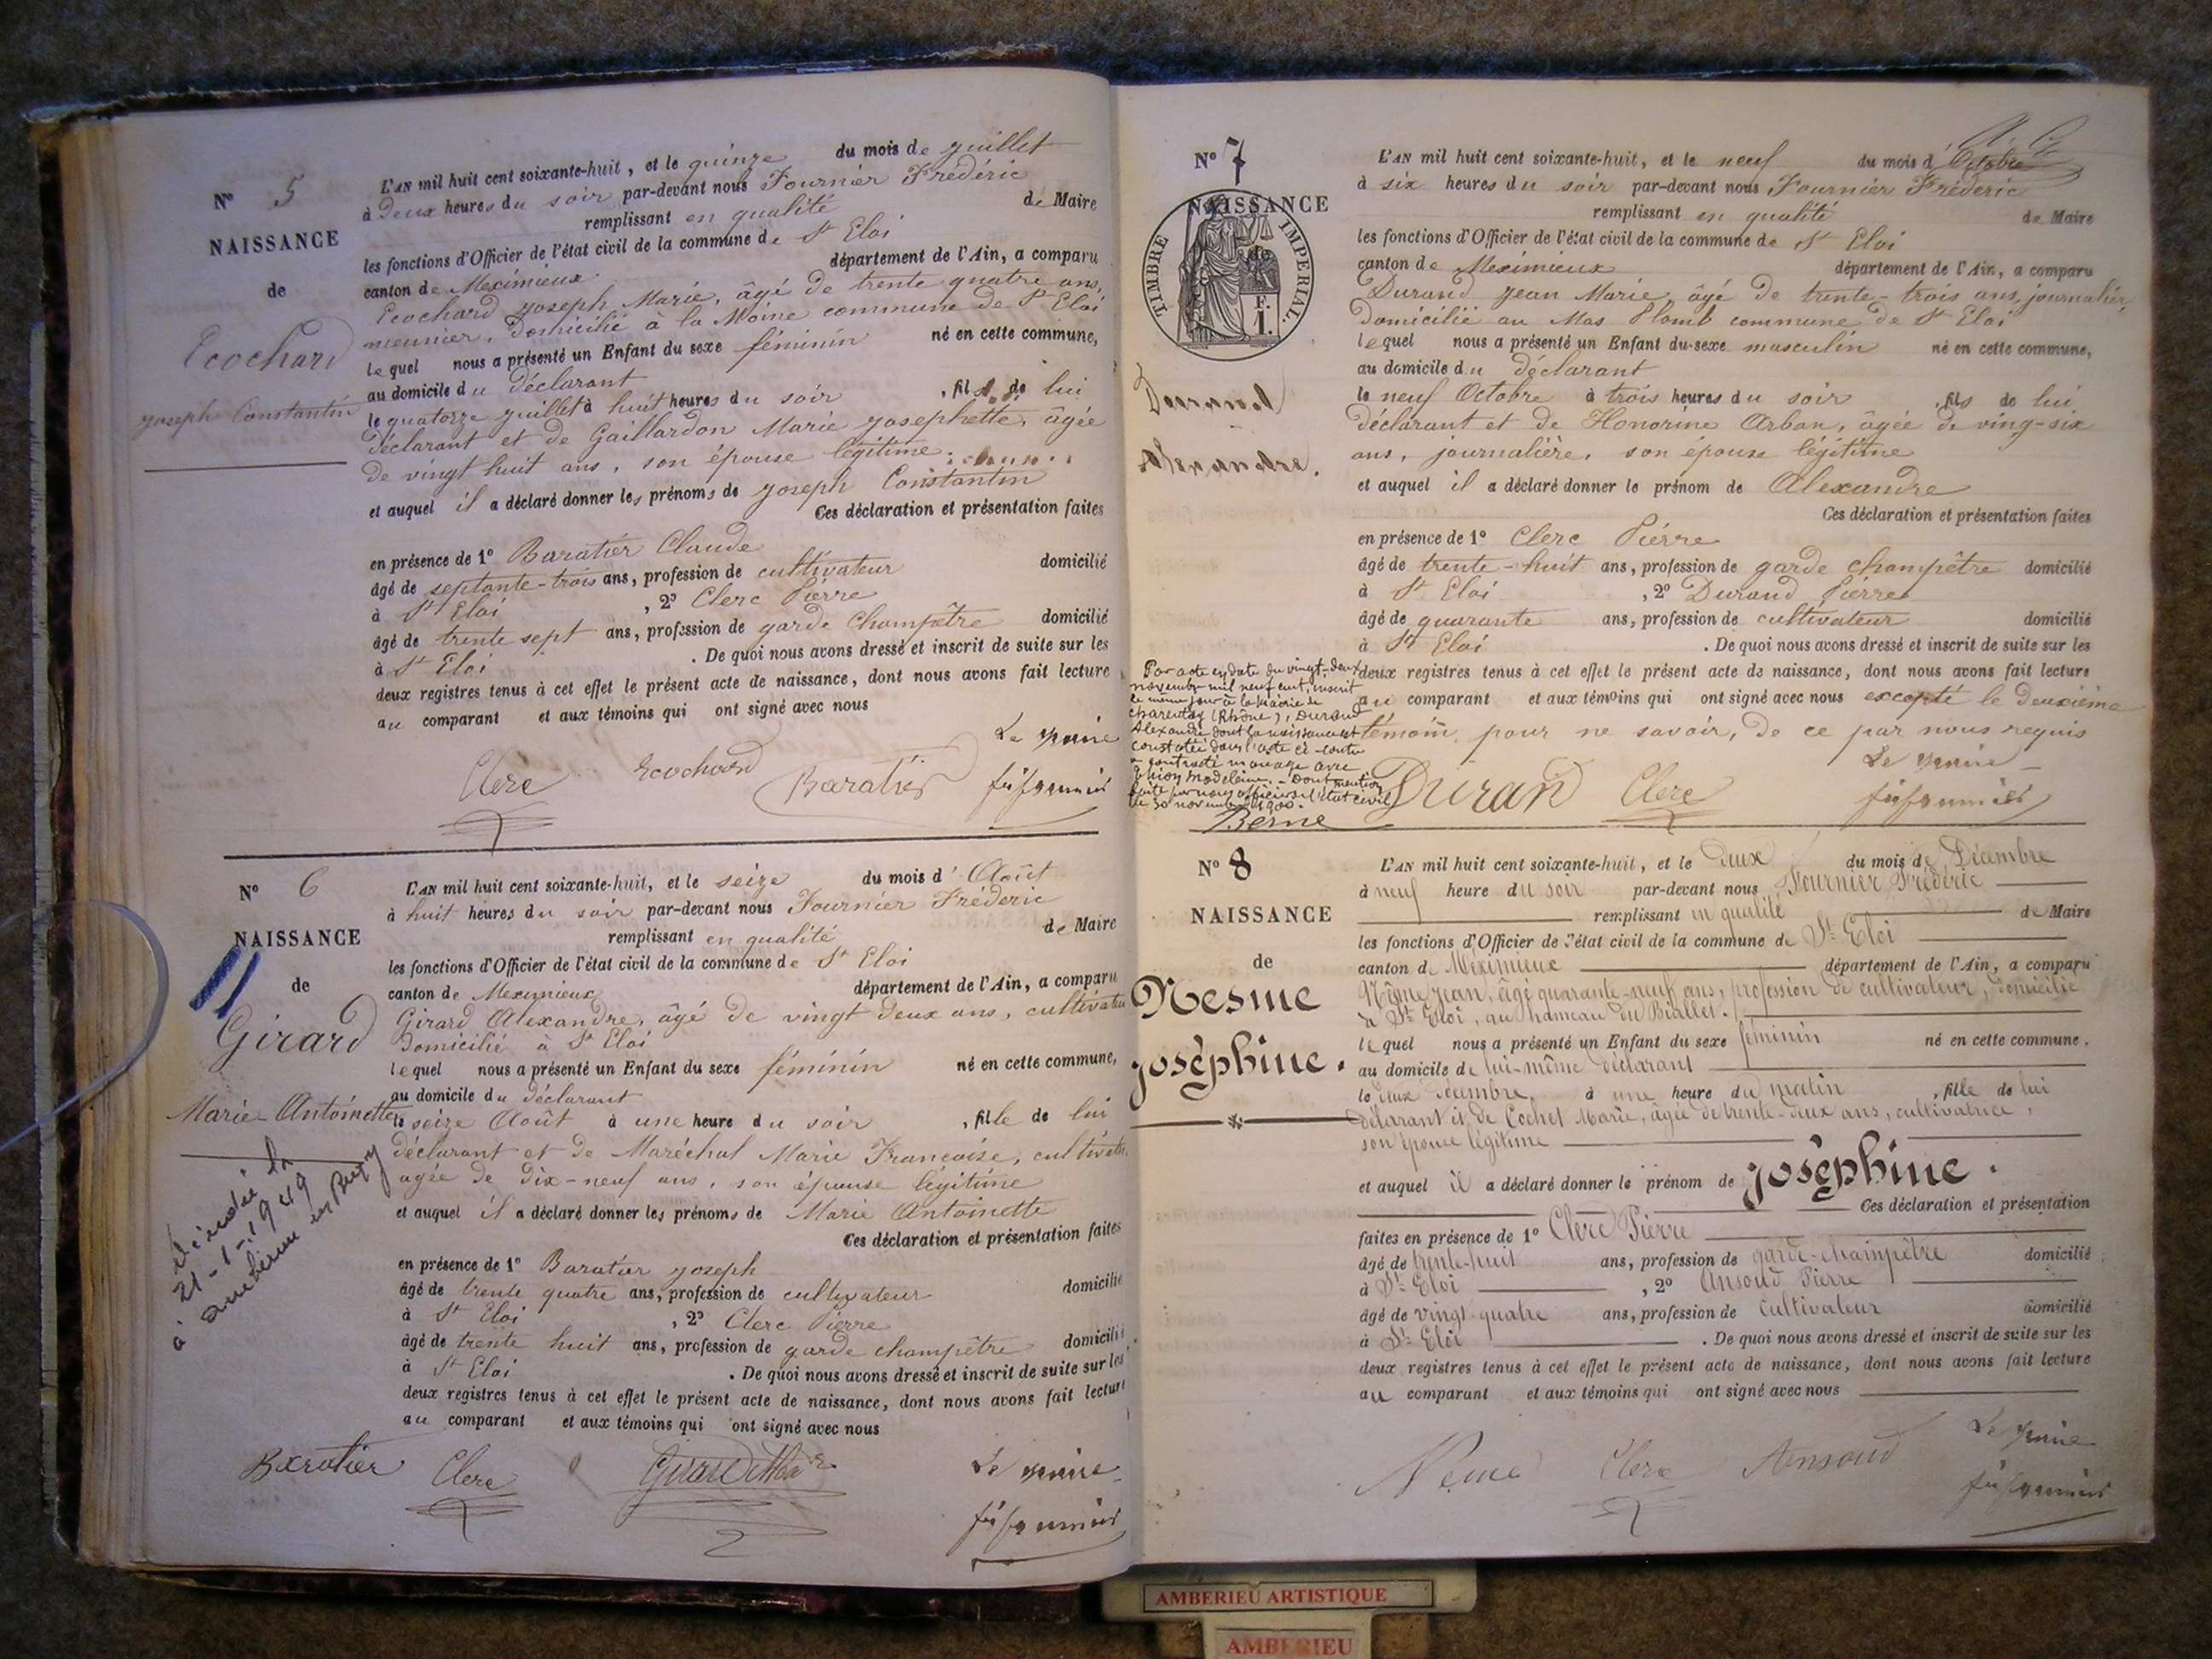 N° 5
NAISSANCE
de
Ecochard
Joseph Constantin
L'AN mil huit cent soixante-huit, et le quinze du mois de Juillet
à Deux heures du soir par-devant nous Fournier Frédéric
remplissant en qualité de Maire
les fonctions d'Officier de l'état civil de la commune de St Eloi
canton de Meximieux département de l'Ain, a comparu
Ecochard Joseph Marie, âgé de trente quatre ans,
meunier, domicilié à la Moine commune de St Eloi
lequel nous a présenté un Enfant du sexe féminin né en cette commune,
au domicile du déclarant
le quatorze Juillet à huit heures du soir, fils de lui
déclarant et de Gaillardon Marie Josephette, âgée
de vingt huit ans, son épouse légitime
et auquel il a déclaré donner les prénoms de Joseph Constantin
Ces déclaration et présentation faites
en présence de 1° Baratier Claude
âgé de septante-trois ans, profession de cultivateur domicilié
à St Eloi, 2° Clerc Pierre
âgé de trente sept ans, profession de garde Champêtre domicilié
à St Eloi. De quoi nous avons dressé et inscrit de suite sur les
deux registres tenus à cet effet le présent acte de naissance, dont nous avons fait lecture
au comparant et aux témoins qui ont signé avec nous
Le Maire
Clerc Ecochard Baratier
N° 6
NAISSANCE
de
Girard
Marie-Antoinette
décédée le
21-1-1949
à Ambérieu en Bugey
L'AN mil huit cent soixante-huit, et le seize du mois d'Août
à huit heures du soir par-devant nous Fournier Fréderic
remplissant en qualité de Maire
les fonctions d'Officier de l'état civil de la commune de St Eloi
canton de Meximieux département de l'Ain, a comparu
Girard Alexandre, âgé de vingt deux ans, cultivateur
domicilié à St Eloi
lequel nous a présenté un Enfant du sexe féminin né en cette commune,
au domicile du déclarant
le seize Août à une heure du soir, fille de lui
déclarant et de Maréchal Marie Françoise,
agée de dix-neuf ans, son épouse légitime
et auquel il a déclaré donner les prénoms de Marie Antoinette
Ces déclaration et présentation faites
en présence de 1° Baratier Joseph
âgé de trente quatre ans, profession de cultivateur domicilié
à St Eloi, 2° Clerc Pierre
âgé de trente huit ans, profession de garde champêtre domicilié
à St Eloi. De quoi nous avons dressé et inscrit de suite sur les
deux registres tenus à cet effet le présent acte de naissance, dont nous avons fait lecture
au comparant et aux témoins qui ont signé avec nous
Baratier Clerc Girard Le Maire
N° 7
NAISSANCE
TIMBRE IMPERIAL.
1 F.
Durand
Alexandre.
L'AN mil huit cent soixante-huit, et le neuf du mois d'Octobre
à six heures du soir par-devant nous Fournier Fréderic
remplissant en qualité de Maire
les fonctions d'Officier de l'état civil de la commune de St Eloi
canton de Meximieux département de l'Ain, a comparu
Durand Jean Marie, âgé de trente-trois ans, journalier,
domicilié au Mas Plomb commune de St Eloi
lequel nous a présenté un Enfant du sexe masculin né en cette commune,
au domicile du déclarant
le neuf Octobre à trois heures du soir, fils de lui
déclarant et de Honorine Arban, âgée de ving-six
ans, journalière, son épouse légitime
et auquel il a déclaré donner le prénom de Alexandre
Ces déclaration et présentation faites
en présence de 1° Clerc Pierre
âgé de trente-huit ans, profession de garde champêtre domicilié
à St Eloi, 2° Durand Pierre
âgé de quarante ans, profession de cultivateur domicilié
à St Eloi. De quoi nous avons dressé et inscrit de suite sur les
deux registres tenus à cet effet le présent acte de naissance, dont nous avons fait lecture
au comparant et aux témoins qui ont signé avec nous excepté le deuxième
témoin, pour ne savoir, de ce par nous requis
Par acte en date du vingt-deux
novembre mil neuf cent, inscrit
le même jour à la Mairie de
Charentay (Rhône), Durand
Alexandre dont la naissance est
constatée dans l'acte ci-contre
a contracté mariage avec
Madeleine. - Dont mention
faite par nous officier de l'état civil
le 30 novembre 1900.
Berne
Le Maire
Durand Clerc
N° 8
NAISSANCE
de
Nesme
Joséphine.
L'AN mil huit cent soixante-huit, et le deux du mois de Décembre
à neuf heure du soir par-devant nous Fournier Fréderic
remplissant en qualité de Maire
les fonctions d'Officier de l'état civil de la commune de St Eloi
canton de Méximieux département de l'Ain, a comparu
Nême Jean, âgé quarante-neuf ans, profession de cultivateur, domicilié
à St Eloi, au hameau du Biallet.
lequel nous a présenté un Enfant du sexe féminin né en cette commune,
au domicile de lui-même déclarant
le deux décembre, à une heure du matin, fille de lui
déclarant et de Cochet Marie, âgée de trente-deux ans, cultivatrice,
son épouse légitime
et auquel il a déclaré donner le prénom de Joséphine.
Ces déclaration et présentation
faites en présence de 1° Clerc Pierre
âgé de trente-huit ans, profession de garde-champêtre domicilié
à St Eloi, 2° Ansoud Pierre
âgé de vingt-quatre ans, profession de cultivateur domicilié
à St Eloi. De quoi nous avons dressé et inscrit de suite sur les
deux registres tenus à cet effet le présent acte de naissance, dont nous avons fait lecture
au comparant et aux témoins qui ont signé avec nous
Le Maire
Neme Clerc Ansoud
AMBERIEU ARTISTIQUE
AMBERIEU